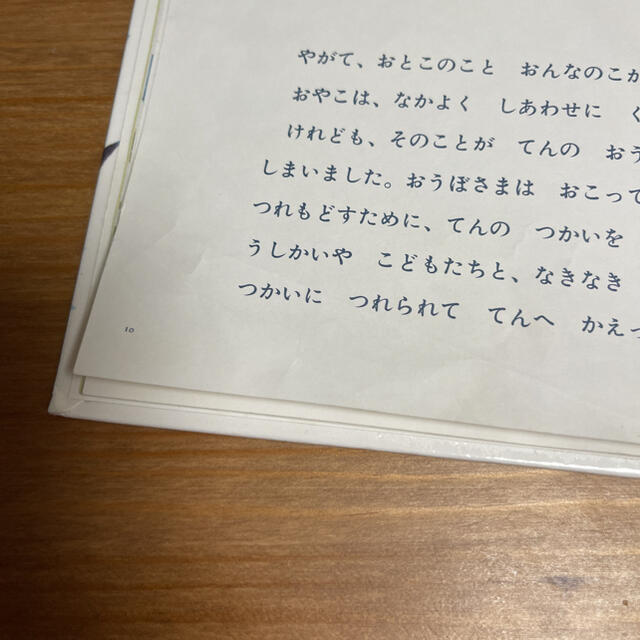 やがて、おとこのこと　おんなのこが
おやこは、なかよく　しあわせに　く
けれども、そのことが　てんの　おう
しまいました。おうぼさまは　おこって
つれもどすために、てんの　つかいを
うしかいや　こどもたちと、なきなき
つかいに　つれられて　てんへ　かえっ
10